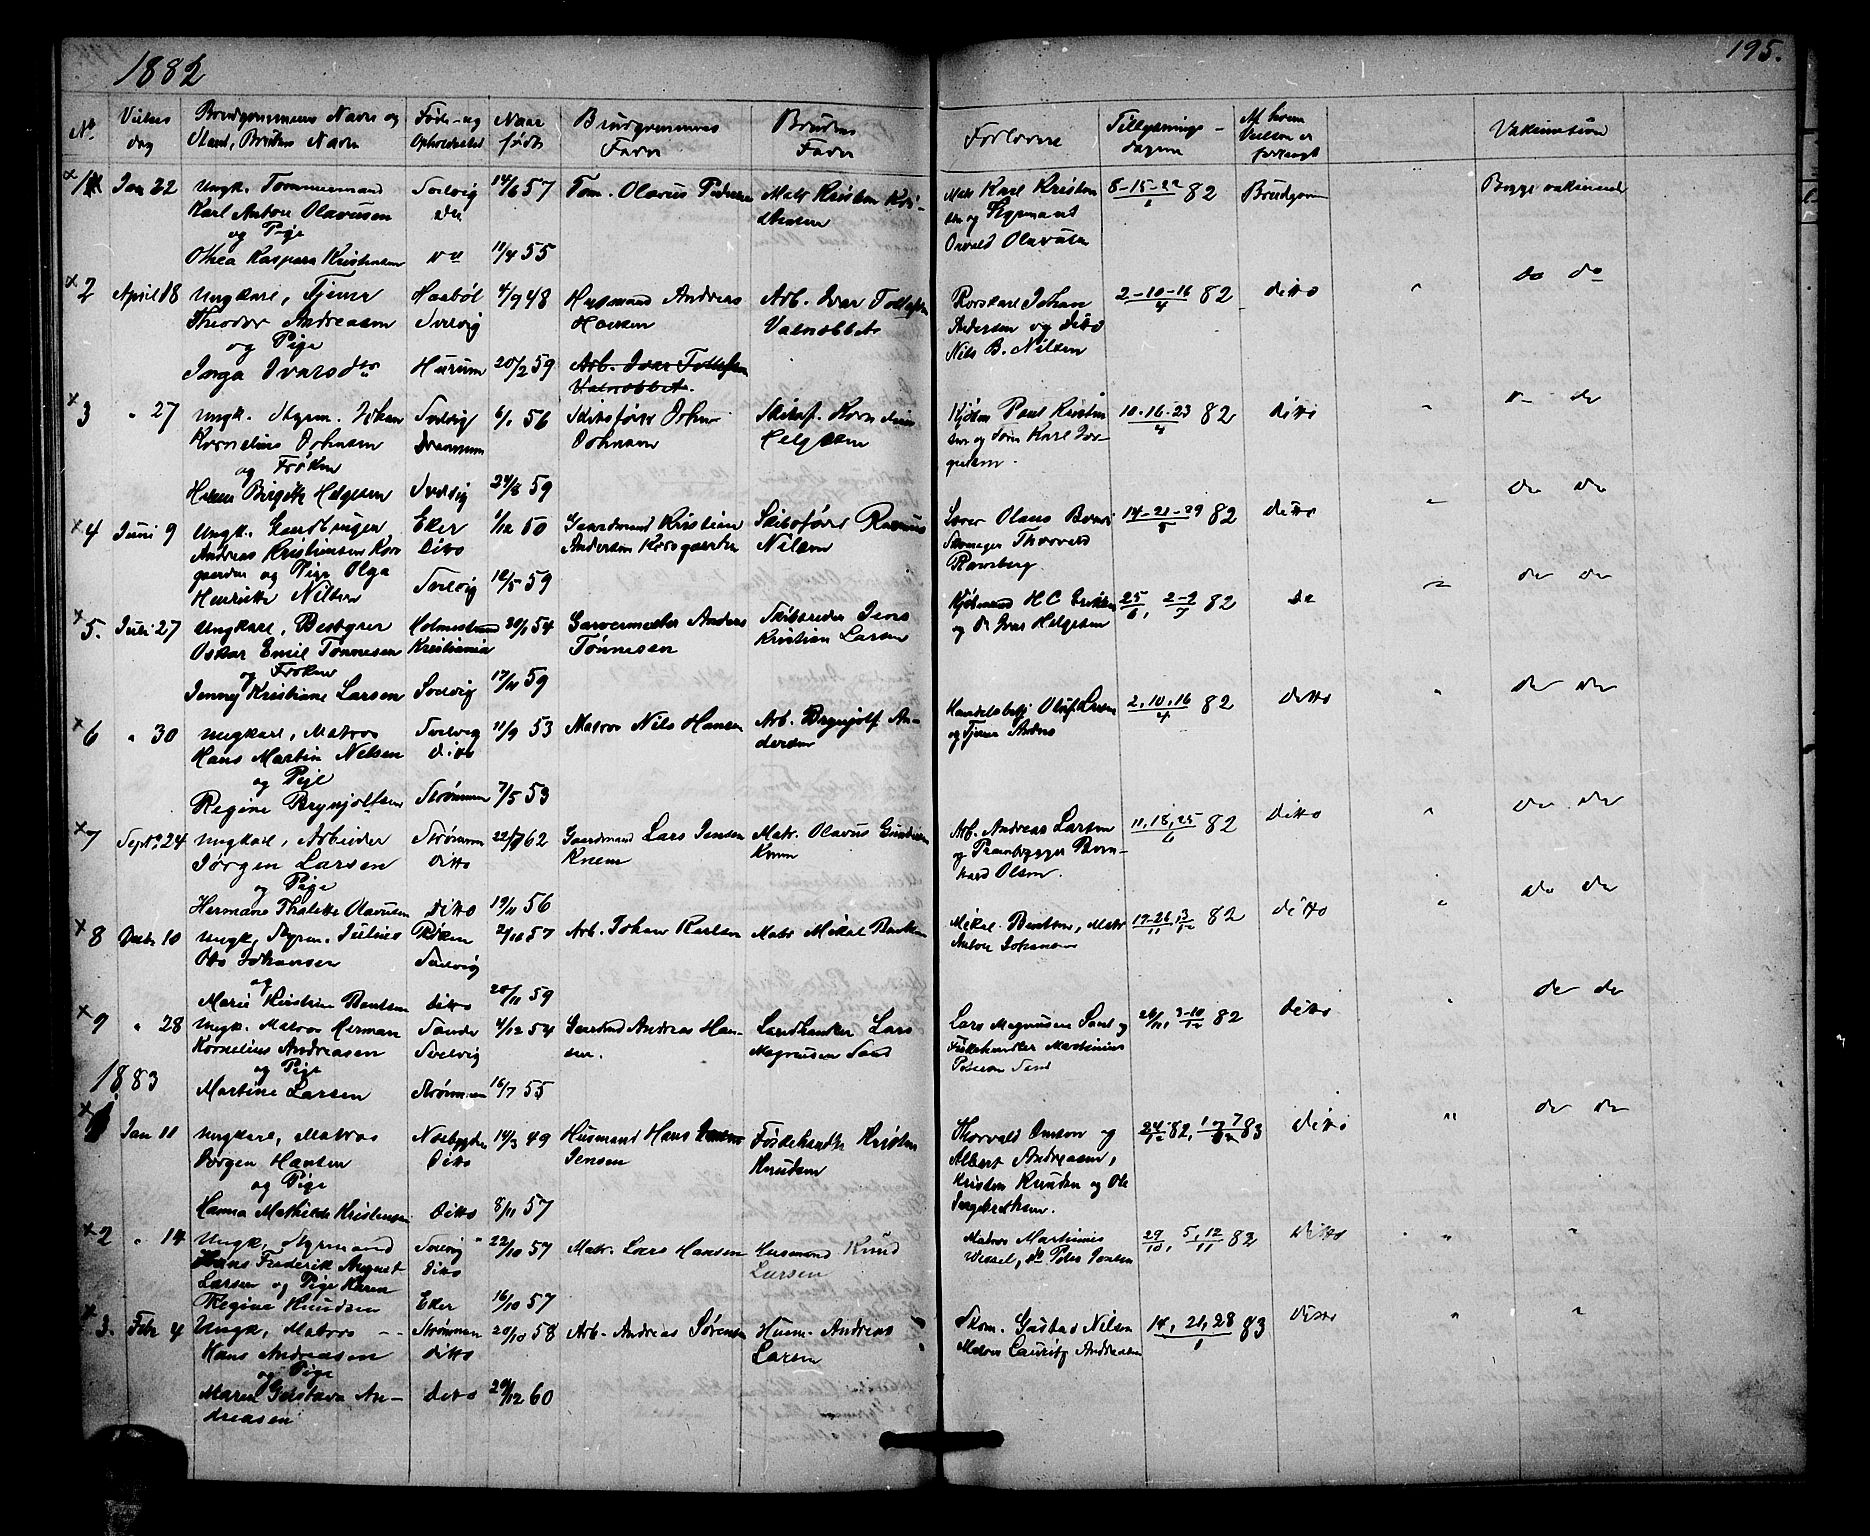 1882
195.
No
Vielses
dag
Brudgommens Navn og
Stand, Brudens Navn
Føde- og
Opholdssted
Naar
født
Brudgommens
Favn
Brudens
Favn
Forlovere
Tillysnings-
dagene
Af hvem
Vielsen er
forlangt
Vakination
1 Jan 22 Ungk. Tømmermand Svelvig 14/6 57 Tøm. Olavus Pedersen Matr Kristen Kri-
Karl Anton Olavusen do stensen
og Pige
Othea Kaspara Kristensen 11/4 55
Matr Karl Kristen
sen og Styrmand
Osvald Olavusen
8-15-22/1 82 Brudgom Begge vaksinerede
2 April 18 Ungkarl, Tjener Haabøl 4/9 48 Husmand Andreas Arb. Ivar Tollefsen
Theodor Andreasen Svelvig Hansen
og Pige
Inga Ivarsdtr Hurum 20/2 59 Arb. Ivar Tollefsen
Rorskarl Johan
Andersen og ditto
Nils B. Nilsen
2-10-16/4 82 ditto " do do
3 " 27 Ungk. Styrm. Johan Svelvig 6/1 56 Skibsfører John Skibsf. Kornelius
Kornelius Johnsen Drammen Johnsen Helgesen
og Frøken
Helene Birgitte Helgesen Svelvig 24/8 59
Kjøbm Paul Kristen
sen og Tøm Karl Jør-
gensen.
10-16-23/4 82 ditto " do
4 Juni 9 Ungk. Landbruger Eker 1/12 50 Gaardmand Kristian Skibsfører Rasmus
Andreas Kristiansen Kors Ditto Andersen Korsgaarden Nilsen
gaarden og Pige Olga
Henriette Nilsen Svelvig 12/5 59
Olaus
Thorvald
Ramsberg
14-21-29/5 82 ditto " do do
5. Juli 27 Ungkarl, Bestyrer Holmestrand 20/1 54 Garvermester Anders Skibsreder Jens
Oskar Emil Tønnesen Kristiania Tønnesen Kristian Larsen
og Frøken
Jenny Kristiane Larsen Svelvig 17/11 59
Kjøbmand H C Eriksen
og do Ivar Helgesen
25/6, 2-9/7 82 do " do do
6 " 30 Ungkarl, Matros Svelvig 11/9 53 Matros Nils Hansen Arb. Brynjolf An-
Hans Martin Nilsen Ditto dersen
og Pige
Regine Brynjolfsen Strømmen 7/5 53
Handelsbetj Oluf Larsen
og Tjener Anders
2, 10, 16/4 82 ditto " do do
7 Septbr 24 Ungkarl, Arbeider Strømmen 22/7 62 Gaardmand Lars Jensen Matr. Olavus Gundersen
Jørgen Larsen Ditto Knem Knem
og Pige
Hermane Thalette Olavusen Ditto 19/11 56
Arb. Andreas Larsen
og Prambygger Bern-
hard Olsen.
11, 18, 25/6 82 ditto " do do
8 Decbr 10 Ungk, Styrm. Julius Røken 2/10 57 Arb. Johan Karlsen Matr Mikal Bentsen
Otto Johansen Svelvig
og
Marie Kirstine Bentsen ditto 20/11 59
Mikal Bentsen, Matr
Anton Johansen
19-26/11, 3/12 82 ditto " do do
9 " 28 Ungk. Matros Herman Sande 4/12 54 Gaardmd Andreas Han- Landhandler Lars
Kornelius Andreasen Svelvig sen. Magnusen Sand
og Pige
Martine Larsen Strømmen 16/7 55
Lars Magnusen Sand og
Fiskehandler Martinius
Sand
26/11, 3-10/12 82 ditto " do do
1883
1 Jan 11 Ungkarl, Matros Nesbygden 14/3 49 Husmand Hans Fiskehandler Kristen
Jørgen Hansen Ditto Jensen Knudsen
og Pige
Hanna Mathilde Kristensen Ditto 8/11 57
Thorvald og
Albert Andreasen,
Kristen Knudsen og Ole
Ingebrethsen.
24/12 82, 1 og 7/1 83 ditto " do do
2 " 14 Ungk, Styrmand Svelvig 22/10 57 Matr. Lars Hansen Husmand Knud
Hans Frederik August Ditto Larsen
Larsen og Pige Karen
Regine Knudsen Eker 16/10 57
Matros Martinius
Wessel, do Peter Jensen
29/10, 5, 12/11 82 ditto " "
3. Febr 4 Ungk, Matros Strømmen 20/10 58 Arb. Andreas Sørensen Husm. Andreas
Hans Andreasen ditto Larsen
og Pige
Maren Gustava An- ditto 29/12 60
dreasen
Skom. Gustav Nilsen
Matros Lauritz Andreasen
14, 21, 28/1 83 ditto " "